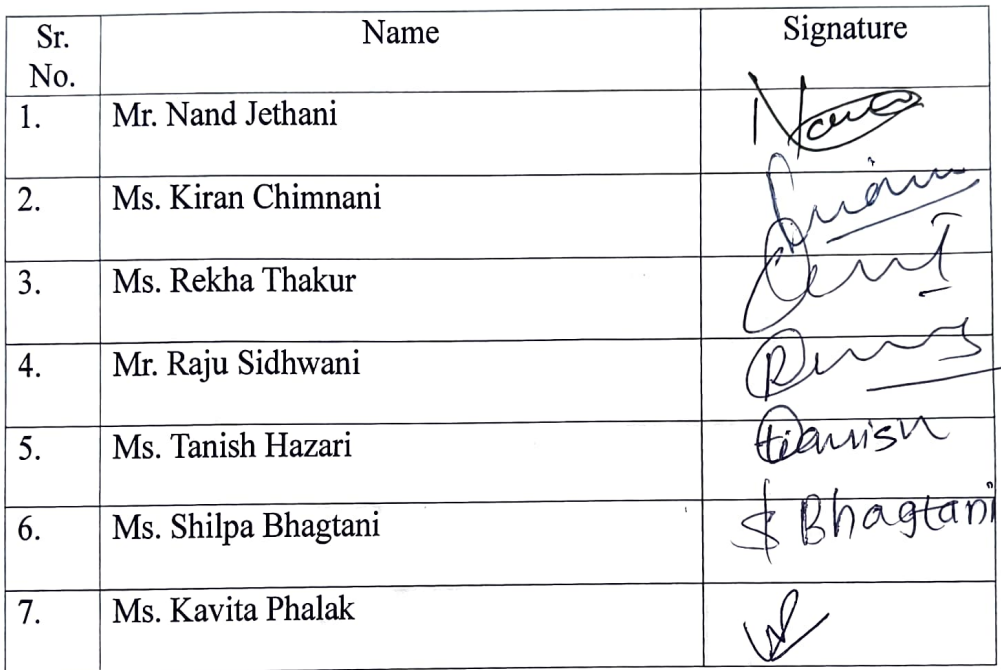 Sr. No. Name Signature
1. Mr. Nand Jethani
2. Ms. Kiran Chimnani
3. Ms. Rekha Thakur
4. Mr. Raju Sidhwani
5. Ms. Tanish Hazari Tanish
6. Ms. Shilpa Bhagtani S Bhagtani
7. Ms. Kavita Phalak